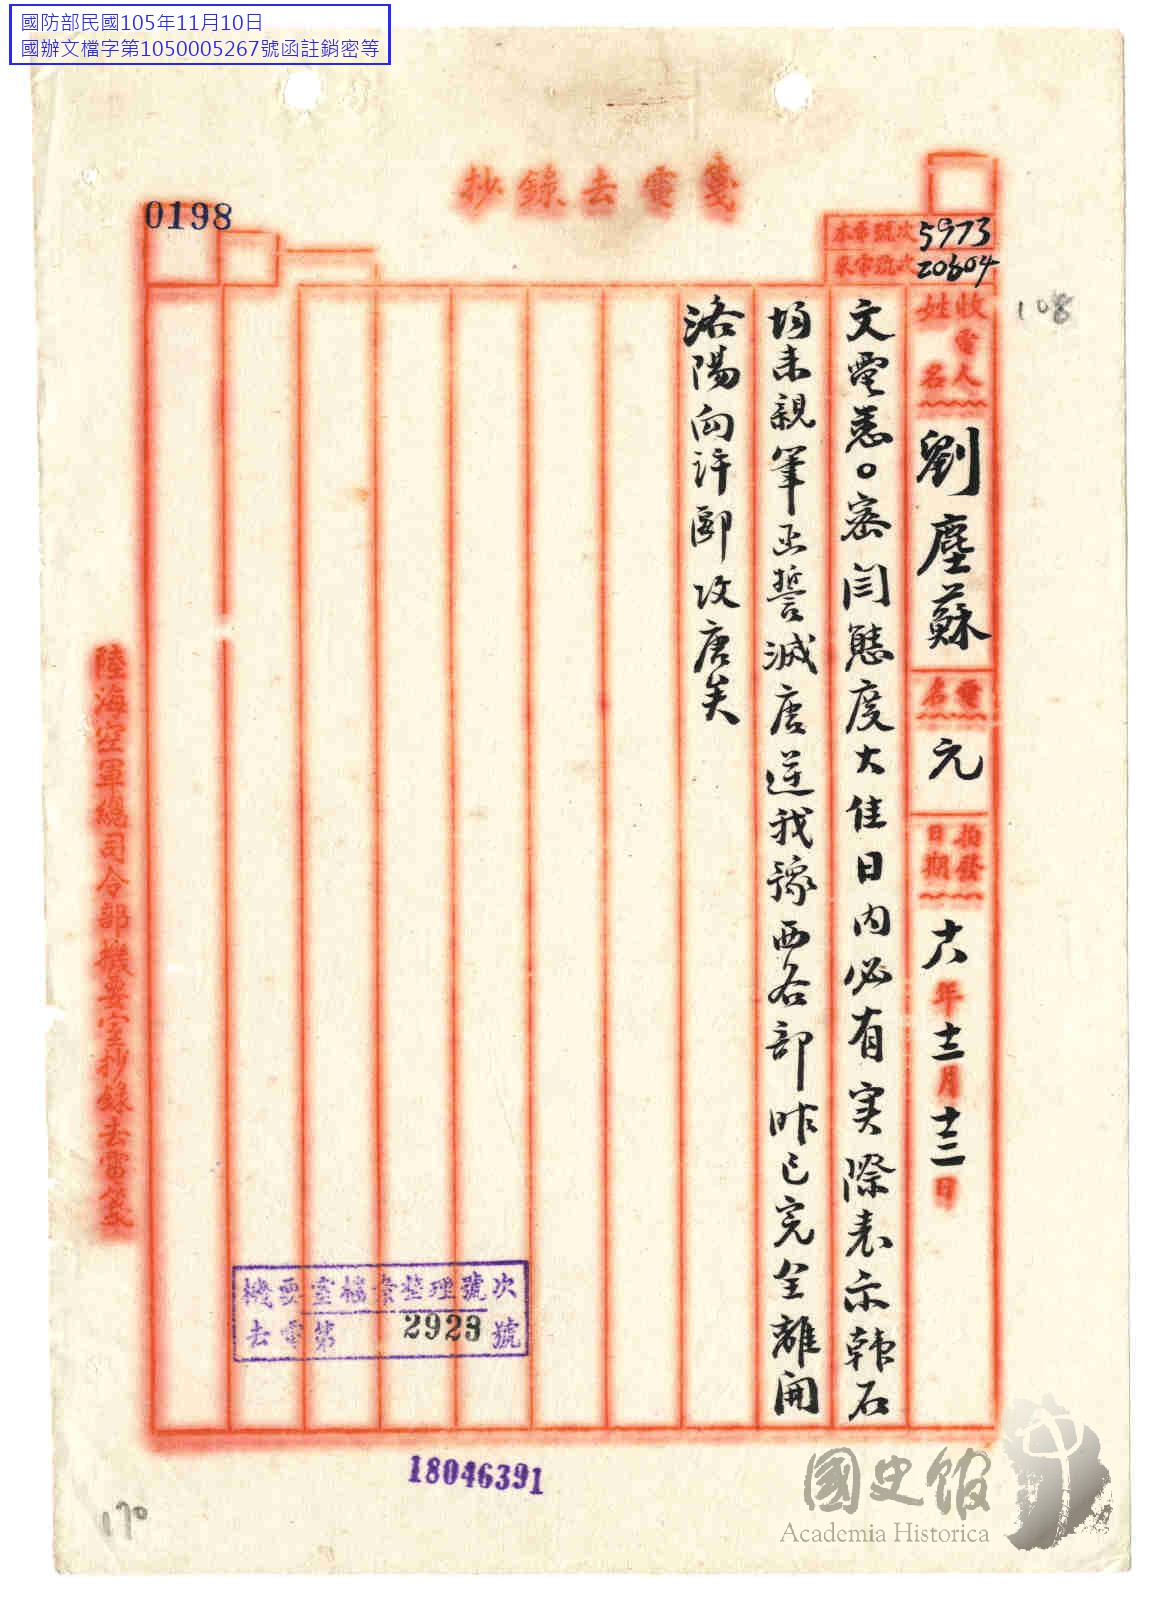 國防部民國105年11月10日
國辦文檔字第1050005267號函註銷密等
抄錄去電箋
0198
本電號次 5973
來電號次 20604
108
收電人姓名 劉塵蘇 電名 元 拍發日期 十八年十二月十三日
文電悉○密閻態度大佳日內必有实際表示韓石
均來親筆函誓滅唐逆我豫西各部昨已完全離開
洛陽向許郾攻唐矣
陸海空軍總司令部機要室抄錄去電箋
機要室檔案整理號次
去電第 2923 號
18046391
170
國史館
Academia Historica